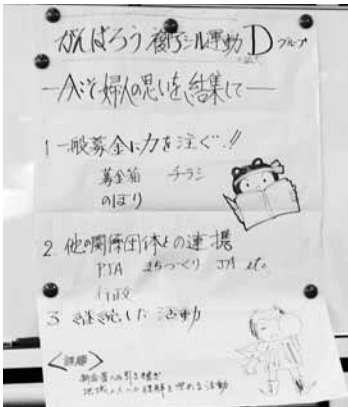 がんばろう 樹子シル運動 D グループ
―今こそ婦人の思いを、結集して―
1 一般募金に力を注ぐ!!
募金箱 チラシ
のぼり
2. 他の関係団体との連携
PTA まちづくり JA etc
行政
3 継続した活動
<課題>
地域の人への理解を深める活動